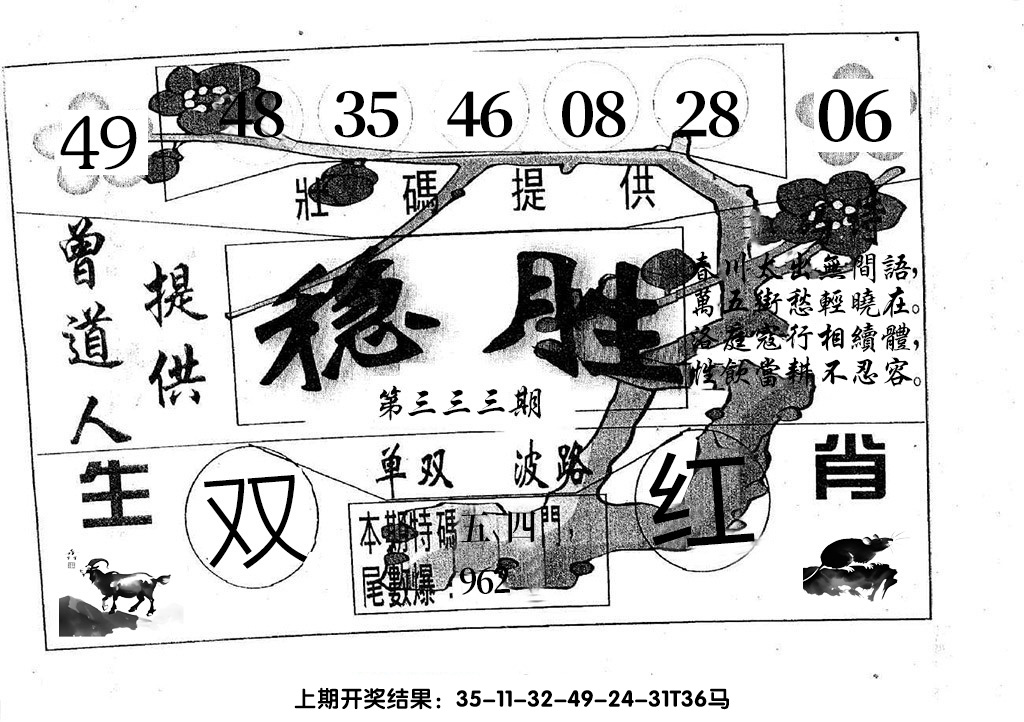 49 48 35 46 08 28 06
壯碼提供
曾道人
提供
稳胜
第三三三期
春川太出無間語,
萬五街愁輕曉在。
洛庭寇行相續體,
性飲當耕不忍容。
生肖
单双 波路
双 红
本期特碼五、四門,
尾數爆:962
上期开奖结果：35-11-32-49-24-31T36马